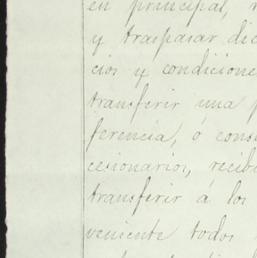 en principal,
y traspasar dic
cios y condicione
transferir una p
ferencia, ó cons
cesionarios, recib
transferir á los
veniente todos